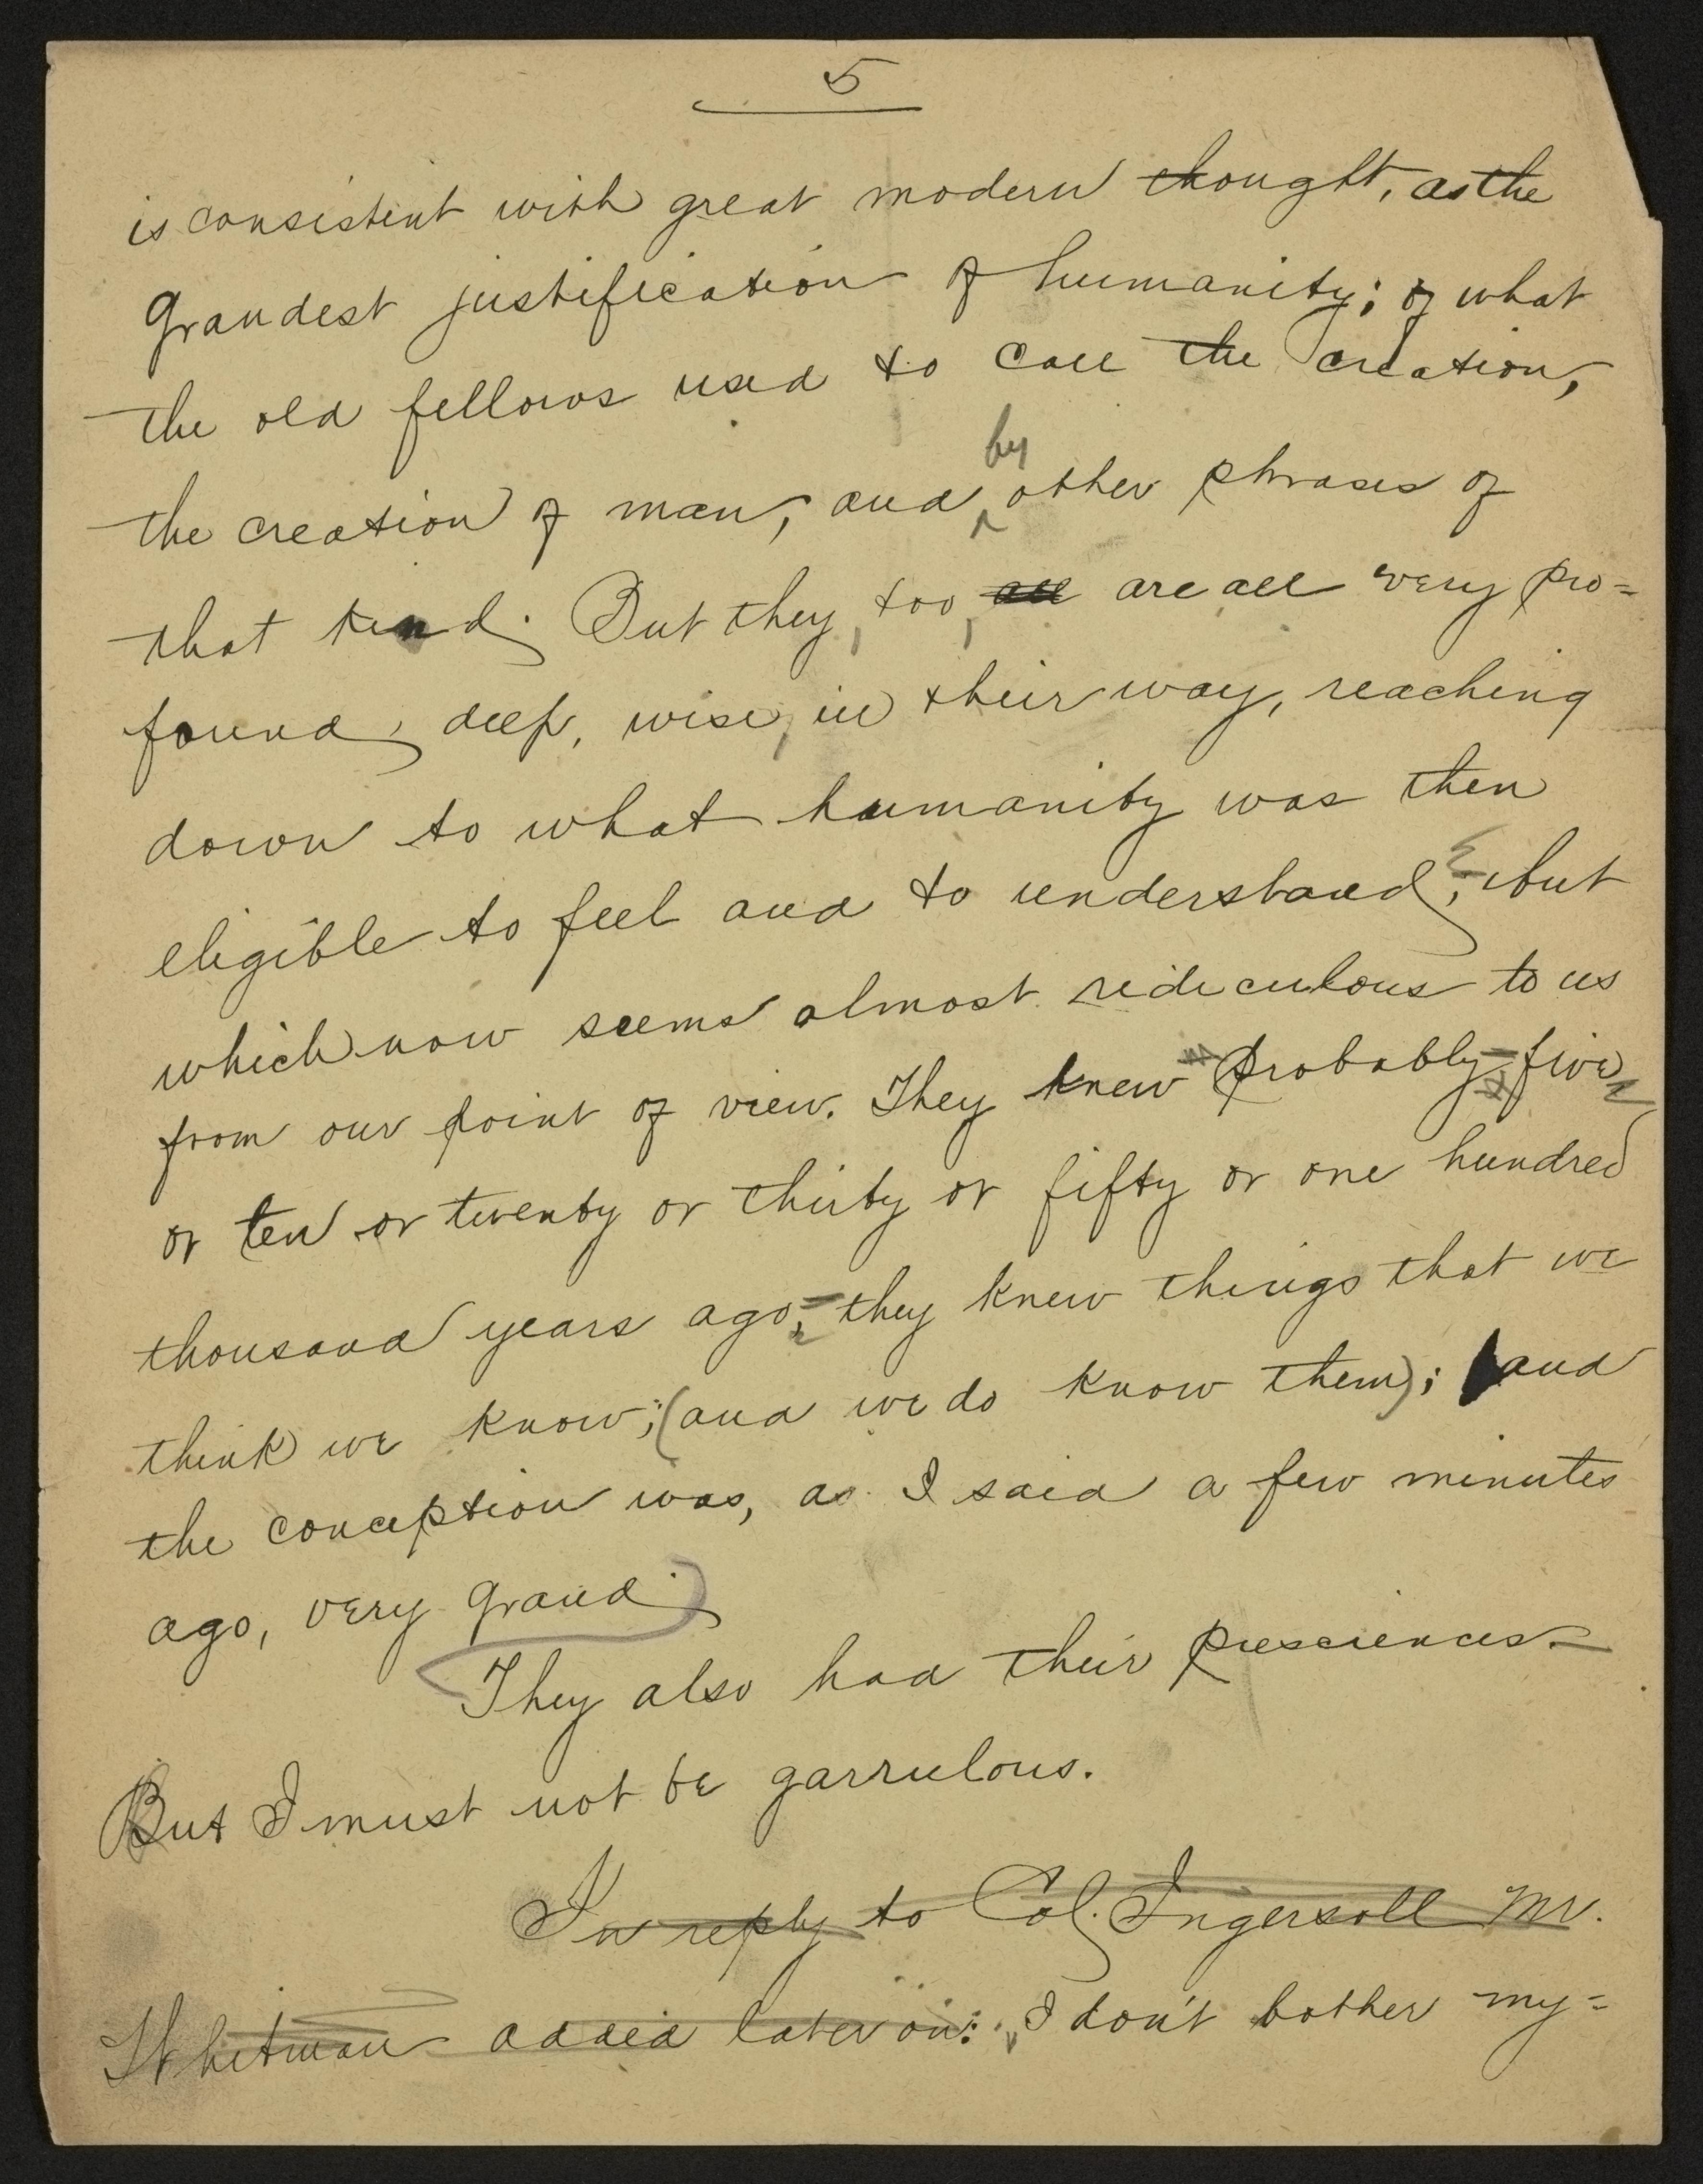 5
is consistent with great modern thought, as the
grandest justification of humanity; of what
the old fellows used to call the creation,
by
the creation of man, and other phrases of
that kind. But they, too, all are all very pro=
found, deep, wise, in their way, reaching
down to what humanity was then
eligible to feel and to understand; but
which now seems almost ridiculous to us
from our point of view. They knew probably five
or ten or twenty or thirty or fifty or one hundred
thousand years ago, they knew things that we
think we know; (and we do know them); and
the conception was, as I said a few minutes
ago, very grand.
They also had their presciences.
But I must not be garrulous.
In reply to Col. Ingersoll Mr.
Whitman added later on: I don't bother my=